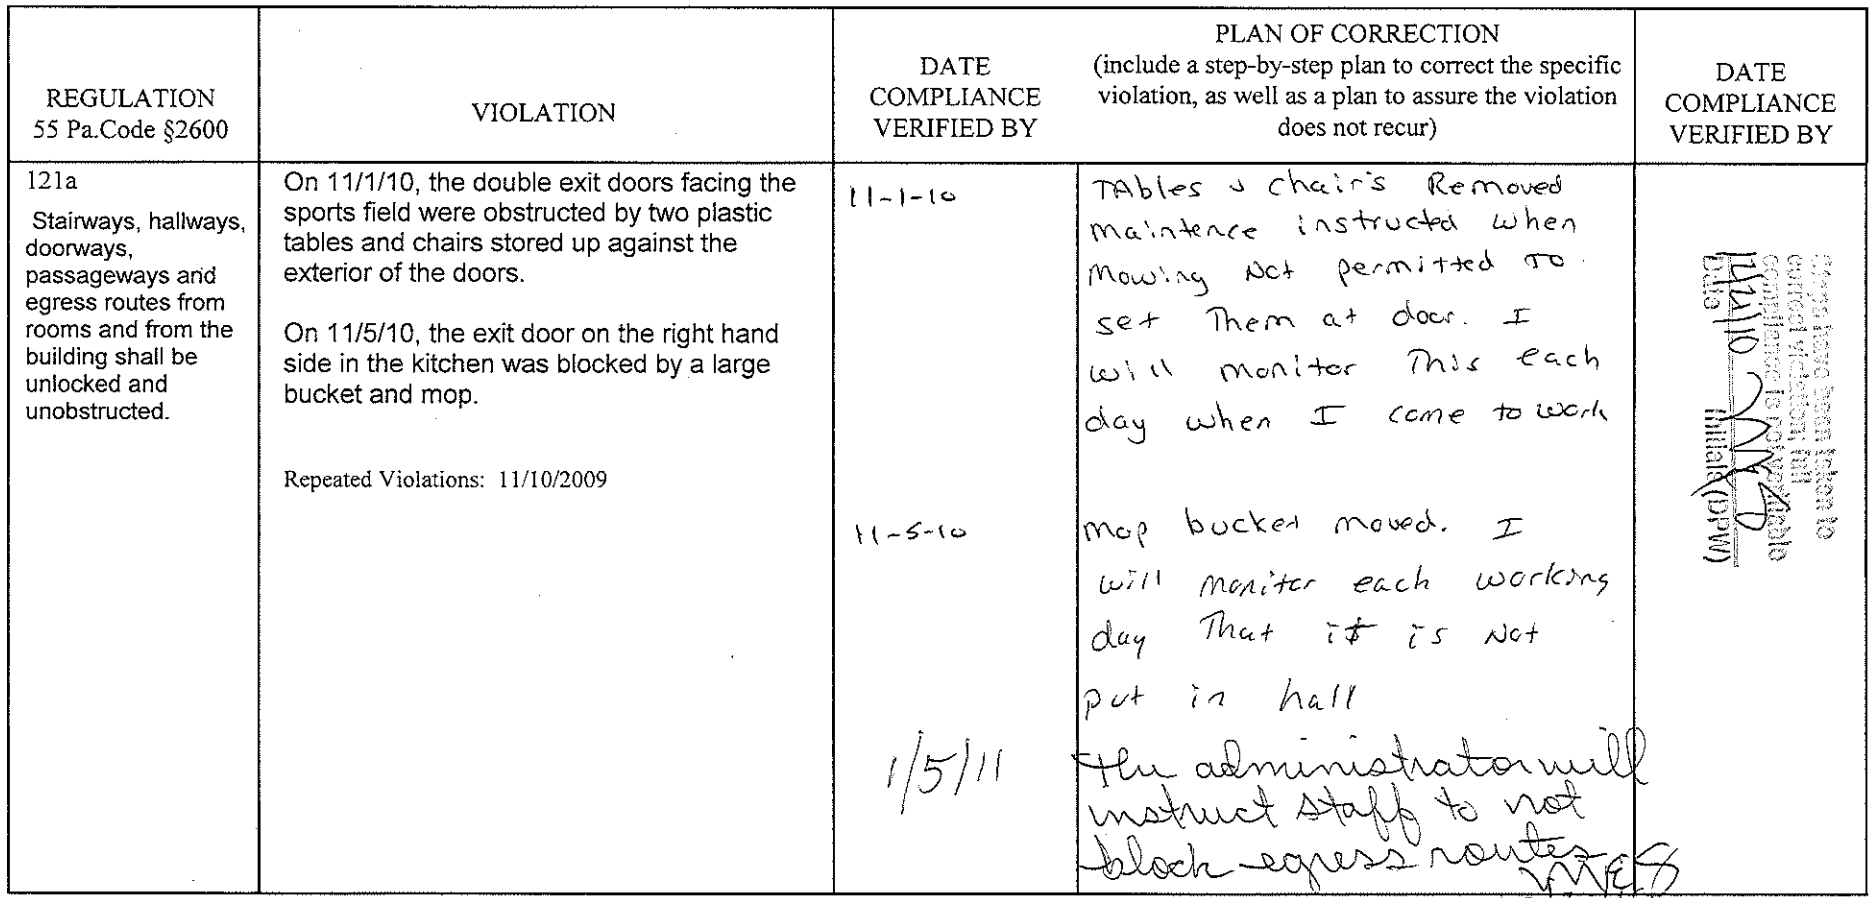 REGULATION
55 Pa.Code §2600
VIOLATION
DATE
COMPLIANCE
VERIFIED BY
PLAN OF CORRECTION
(include a step-by-step plan to correct the specific
violation, as well as a plan to assure the violation
does not recur)
DATE
COMPLIANCE
VERIFIED BY
121a
Stairways, hallways,
doorways,
passageways and
egress routes from
rooms and from the
building shall be
unlocked and
unobstructed.
On 11/1/10, the double exit doors facing the
sports field were obstructed by two plastic
tables and chairs stored up against the
exterior of the doors.
On 11/5/10, the exit door on the right hand
side in the kitchen was blocked by a large
bucket and mop.
Repeated Violations: 11/10/2009
11-1-10
TAbles & chair's Removed
maintence instructed when
Mowing Not permitted TO
set Them at door. I
will monitor This each
day when I come to work
11-5-10
mop bucket moved. I
will monitor each working
day That it is Not
put in hall
1/5/11
the administrator will
instruct staff to not
block egress routes
Steps have been taken to
correct violation; full
compliance is not verifiable
Date Initials (DPW)